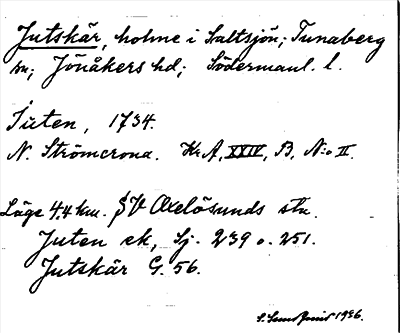 Jutskär, holme i Saltsjön; Tunaberg
sn; Jönåkers hd; Södermanl. l.
Juten, 1734.
N. Strömcrona. Kr A, XXIV, B, N:o II.
Läge 4,4 km. SV Oxelösunds stn.
Juten ek, Sj. 239 o. 251.
Jutskär G. 56.
1936.